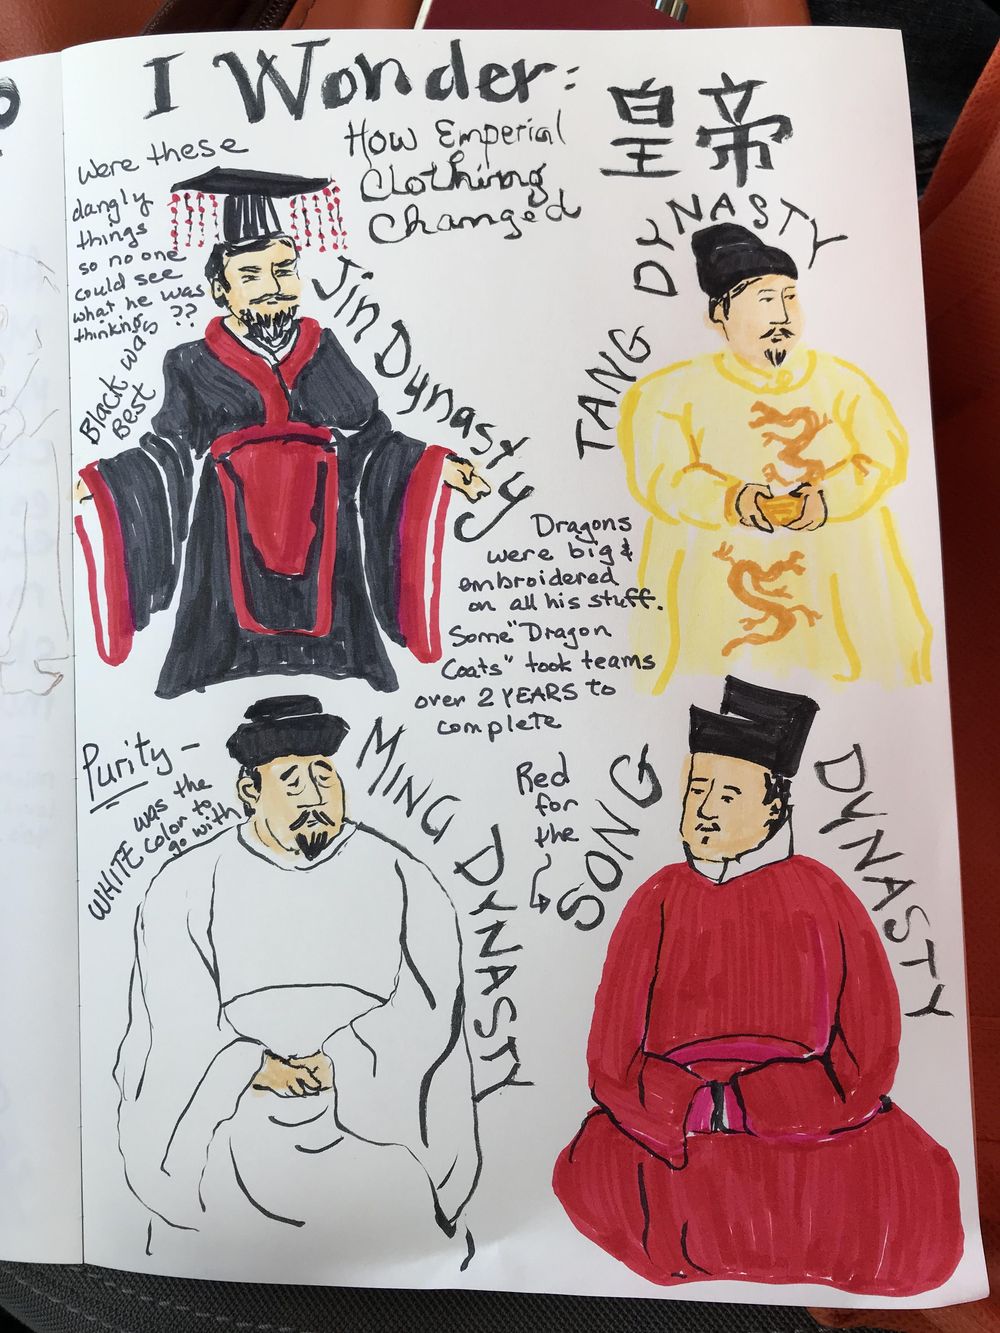 I Wonder:
How Emperial
Clothing
Changed
皇帝
Were these
dangly
things
so no one
could see
what he was
thinking ??
Black was
Best
Jin Dynasty
TANG DYNASTY
Dragons
were big &
embroidered
on all his stuff.
Some "Dragon
Coats" took teams
over 2 YEARS to
complete
Purity -
was the
WHITE color to
go with
MING DYNASTY
Red
for
the
SONG DYNASTY